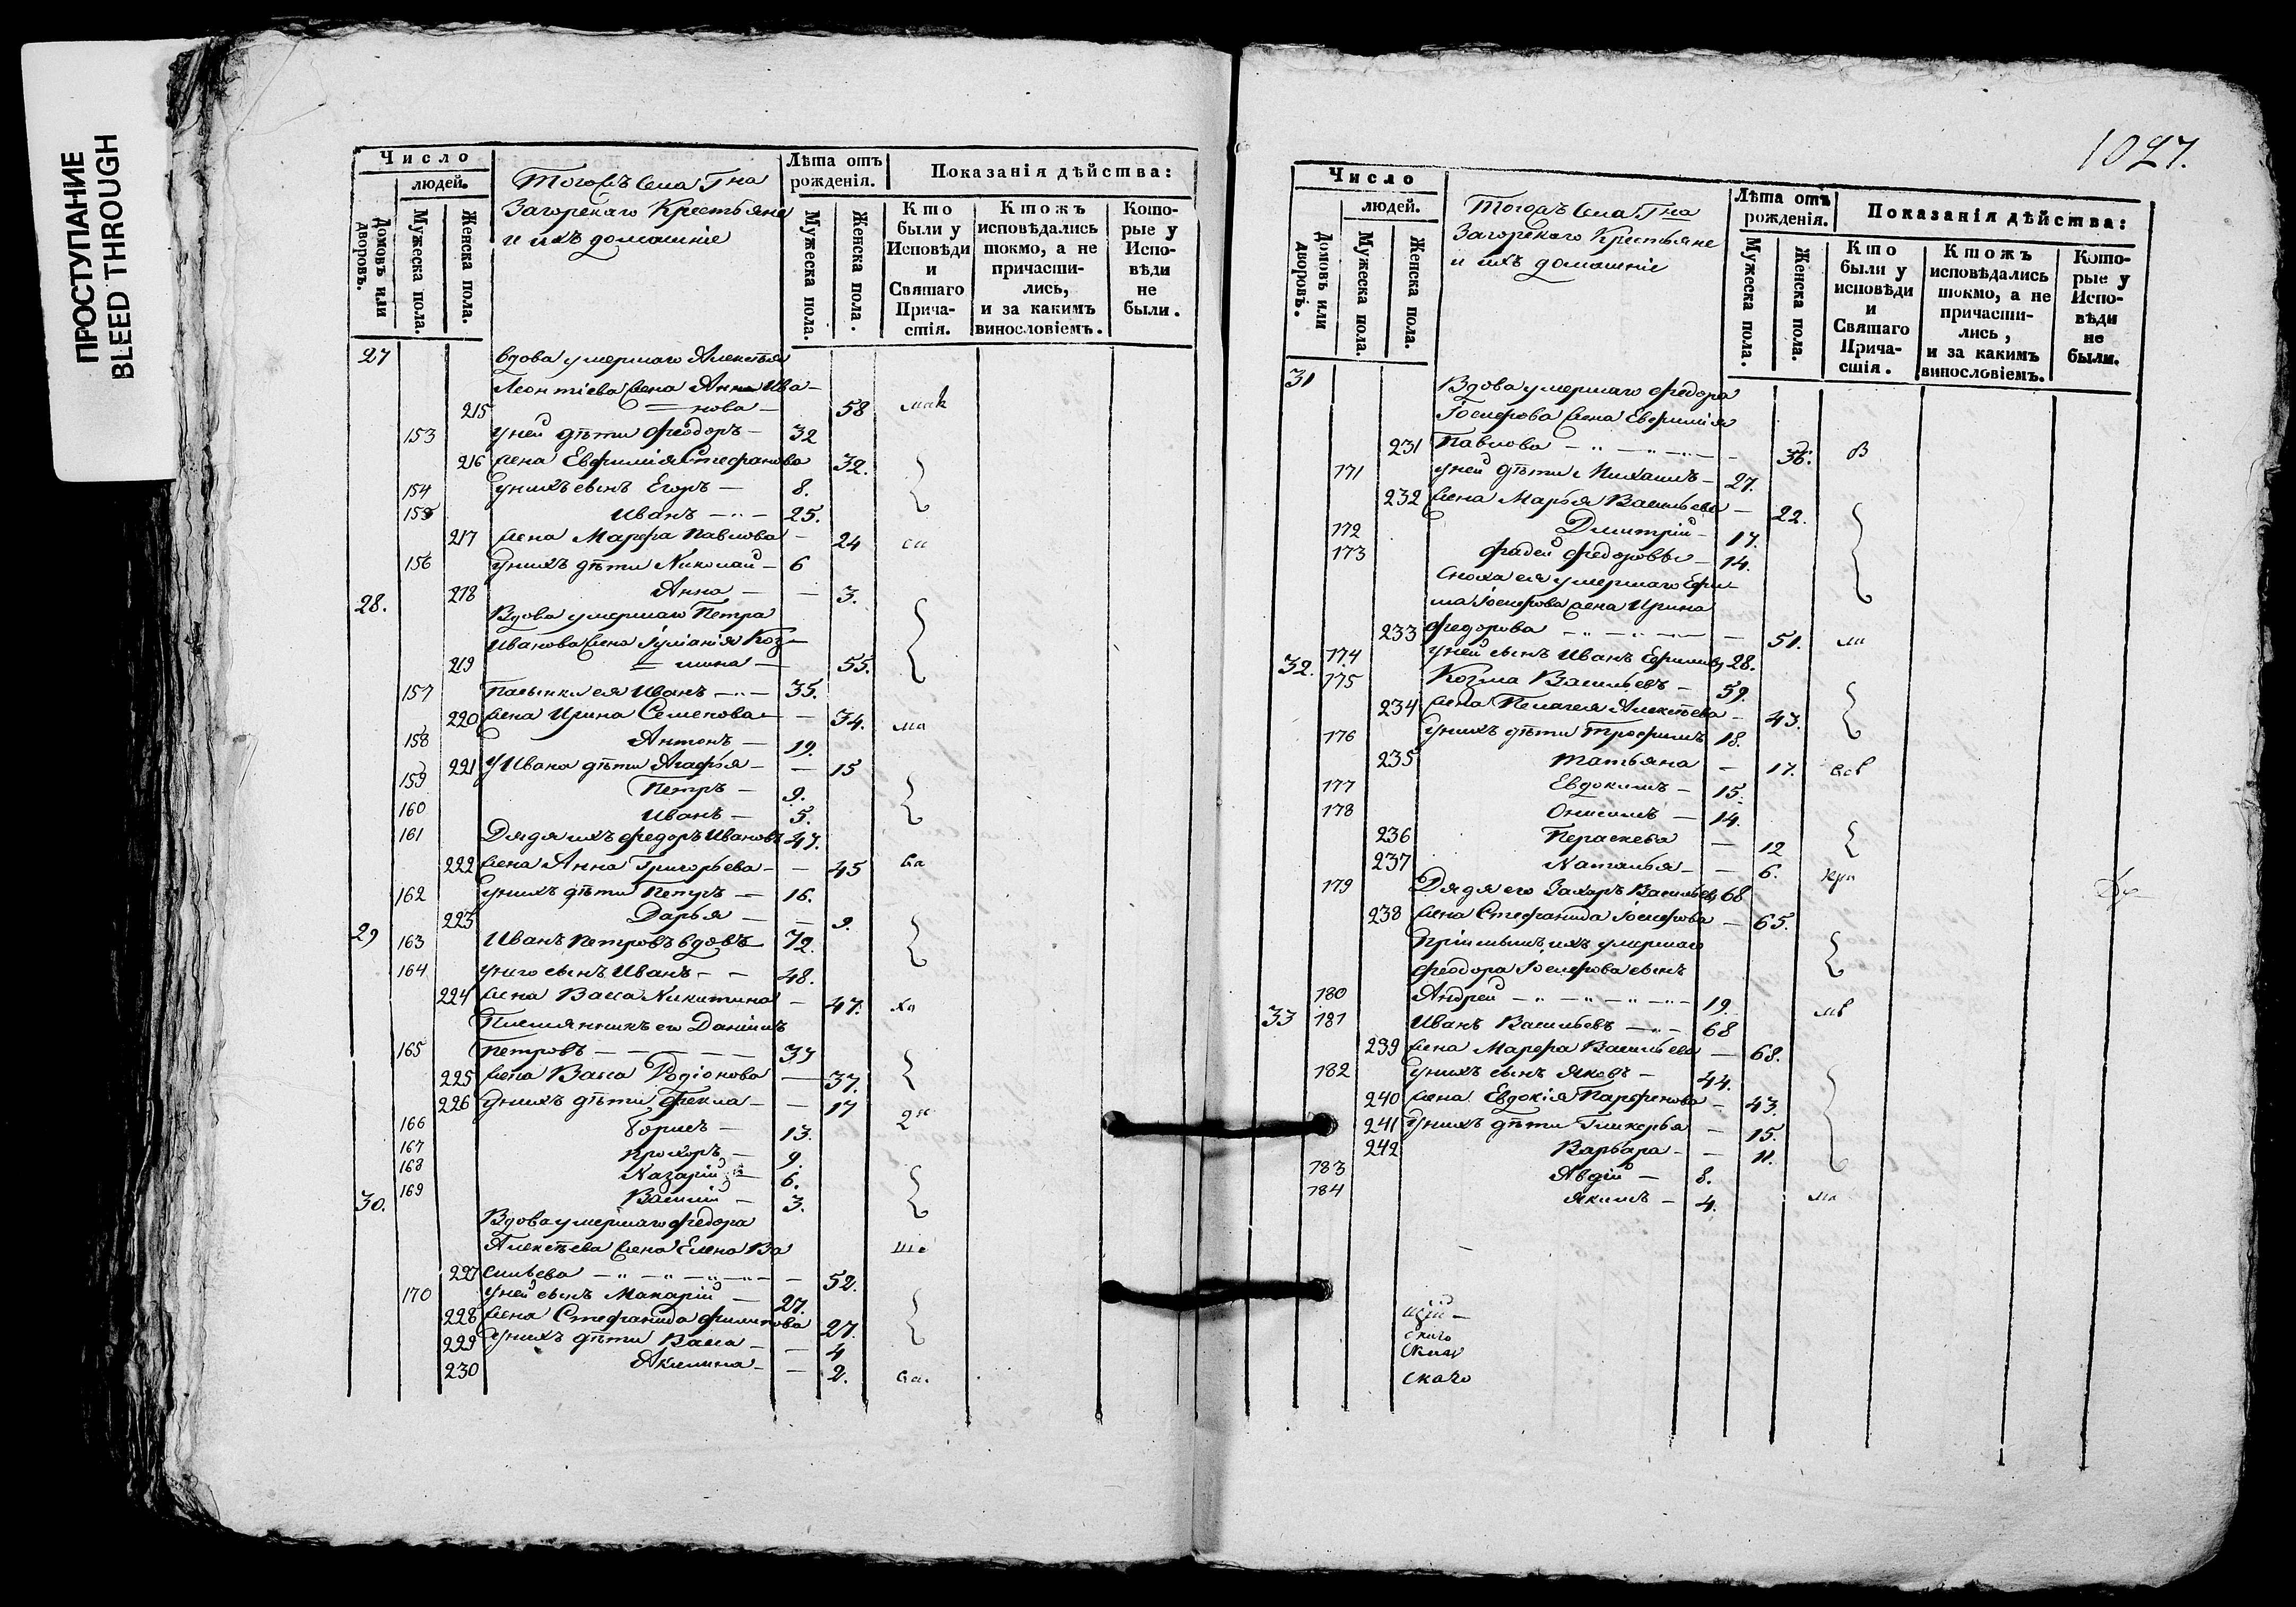 ПРОСТУПАНИЕ
BLEED THROUGH
Число
людей.
Домовъ или дворовъ.
Мужеска пола.
Женска пола.
Тогожъ села Гна
Загорскаго Крестьяне
и ихъ домашніе
Лѣта отъ рожденія.
Мужеска пола.
Женска пола.
Показанія дѣйства:
Кто были у Исповѣди и Святаго Причастія.
Ктожъ исповѣдались токмо, а не причастились, и за какимъ винословіемъ.
Которые у Исповѣди не были.
27 вдова умершаго Алексѣя
Леонтіева жена Анна Ива-
215 = нова — 58
153 у ней дѣти Феодоръ — 32
216 жена Евфимія Стефанова 32.
154 у нихъ сынъ Егоръ — 8.
155 Иванъ — 25.
217 жена Марфа Павлова — 24
156 у нихъ дѣти Николай — 6
218 Анна — — 3.
28. Вдова умершаго Петра
Иванова жена Іуліанія Коз-
219 = мина — 55.
157 Пасынки ея Иванъ — 35.
220 жена Ирина Семенова — — 34.
158 Антонъ — 19.
221 У Ивана дѣти Агафья — — 15
159 Петръ — 9.
160 Иванъ — 5.
161 Дядя ихъ Федоръ Ивановъ 47.
222 жена Анна Григорьева — — 45
162 у нихъ дѣти Петръ — 16.
223 Дарья — — 9.
29 163 Иванъ Петровъ вдовъ 72.
164 у него сынъ Иванъ — — 48.
224 жена Васса Никитина — 47.
Племянникъ его Даніилъ
165 Петровъ — — — — — 37
225 жена Васса Родіонова — 37.
226 у нихъ дѣти Фекла — — 17
166 Борисъ — 13.
167 Прохоръ — 9.
168 Назарій — 6.
169 Василій — 3.
30. Вдова умершаго Федора
Алексѣева жена Елена Ва
227 сильева — — — — — 52.
170 у ней сынъ Макарій — 27.
228 жена Стефанида Филипова 27.
229 у нихъ дѣти Васса — — 4
230 Акилина — — 2.
1027.
Число
людей.
Домовъ или дворовъ.
Мужеска пола.
Женска пола.
Тогожъ села Гна
Загорскаго Крестьяне
и ихъ домашніе
Лѣта отъ рожденія.
Мужеска пола.
Женска пола.
Показанія дѣйства:
Кто были у исповѣди и Святаго Причастія.
Ктожъ исповѣдались токмо, а не причастились, и за какимъ винословіемъ.
Которые у Исповѣди не были.
31 Вдова умершаго Федора
Іосифова жена Евфимія
231 Павлова — — — — 56.
171 у ней дѣти Михаилъ — 27.
232 жена Марья Васильева — 22.
172 Дмитрій — 17.
173 Фадей Федоровы — 14.
Сноха ея умершаго Ефи-
ма Іосифова жена Ирина
233 Федорова — — — — 51.
174 у ней сынъ Иванъ Ефимовъ 28.
32. 175 Козма Васильевъ — 59.
234 жена Пелагея Алексѣева — 43.
176 у нихъ дѣти Трофимъ 18.
235 Татьяна — 17.
177 Евдокимъ — 15.
178 Онисимъ — 14.
236 Параскева — 12
237 Наталья — — 6.
179 Дядя его Захаръ Васильевъ 68
238 жена Стефанида Іосифова — 65.
Пріимышъ ихъ умершаго
Феодора Іосифова сынъ
180 Андрей — — — — 19.
33 181 Иванъ Васильевъ — 68
239 жена Марфа Васильева — 68.
182 у нихъ сынъ Яковъ — 44.
240 жена Евдокія Парфенова — 43.
241 у нихъ дѣти Гликерья — 15.
242 Варвара — — 11.
183 Авдій — 8.
184 Якимъ — 4.
скаго